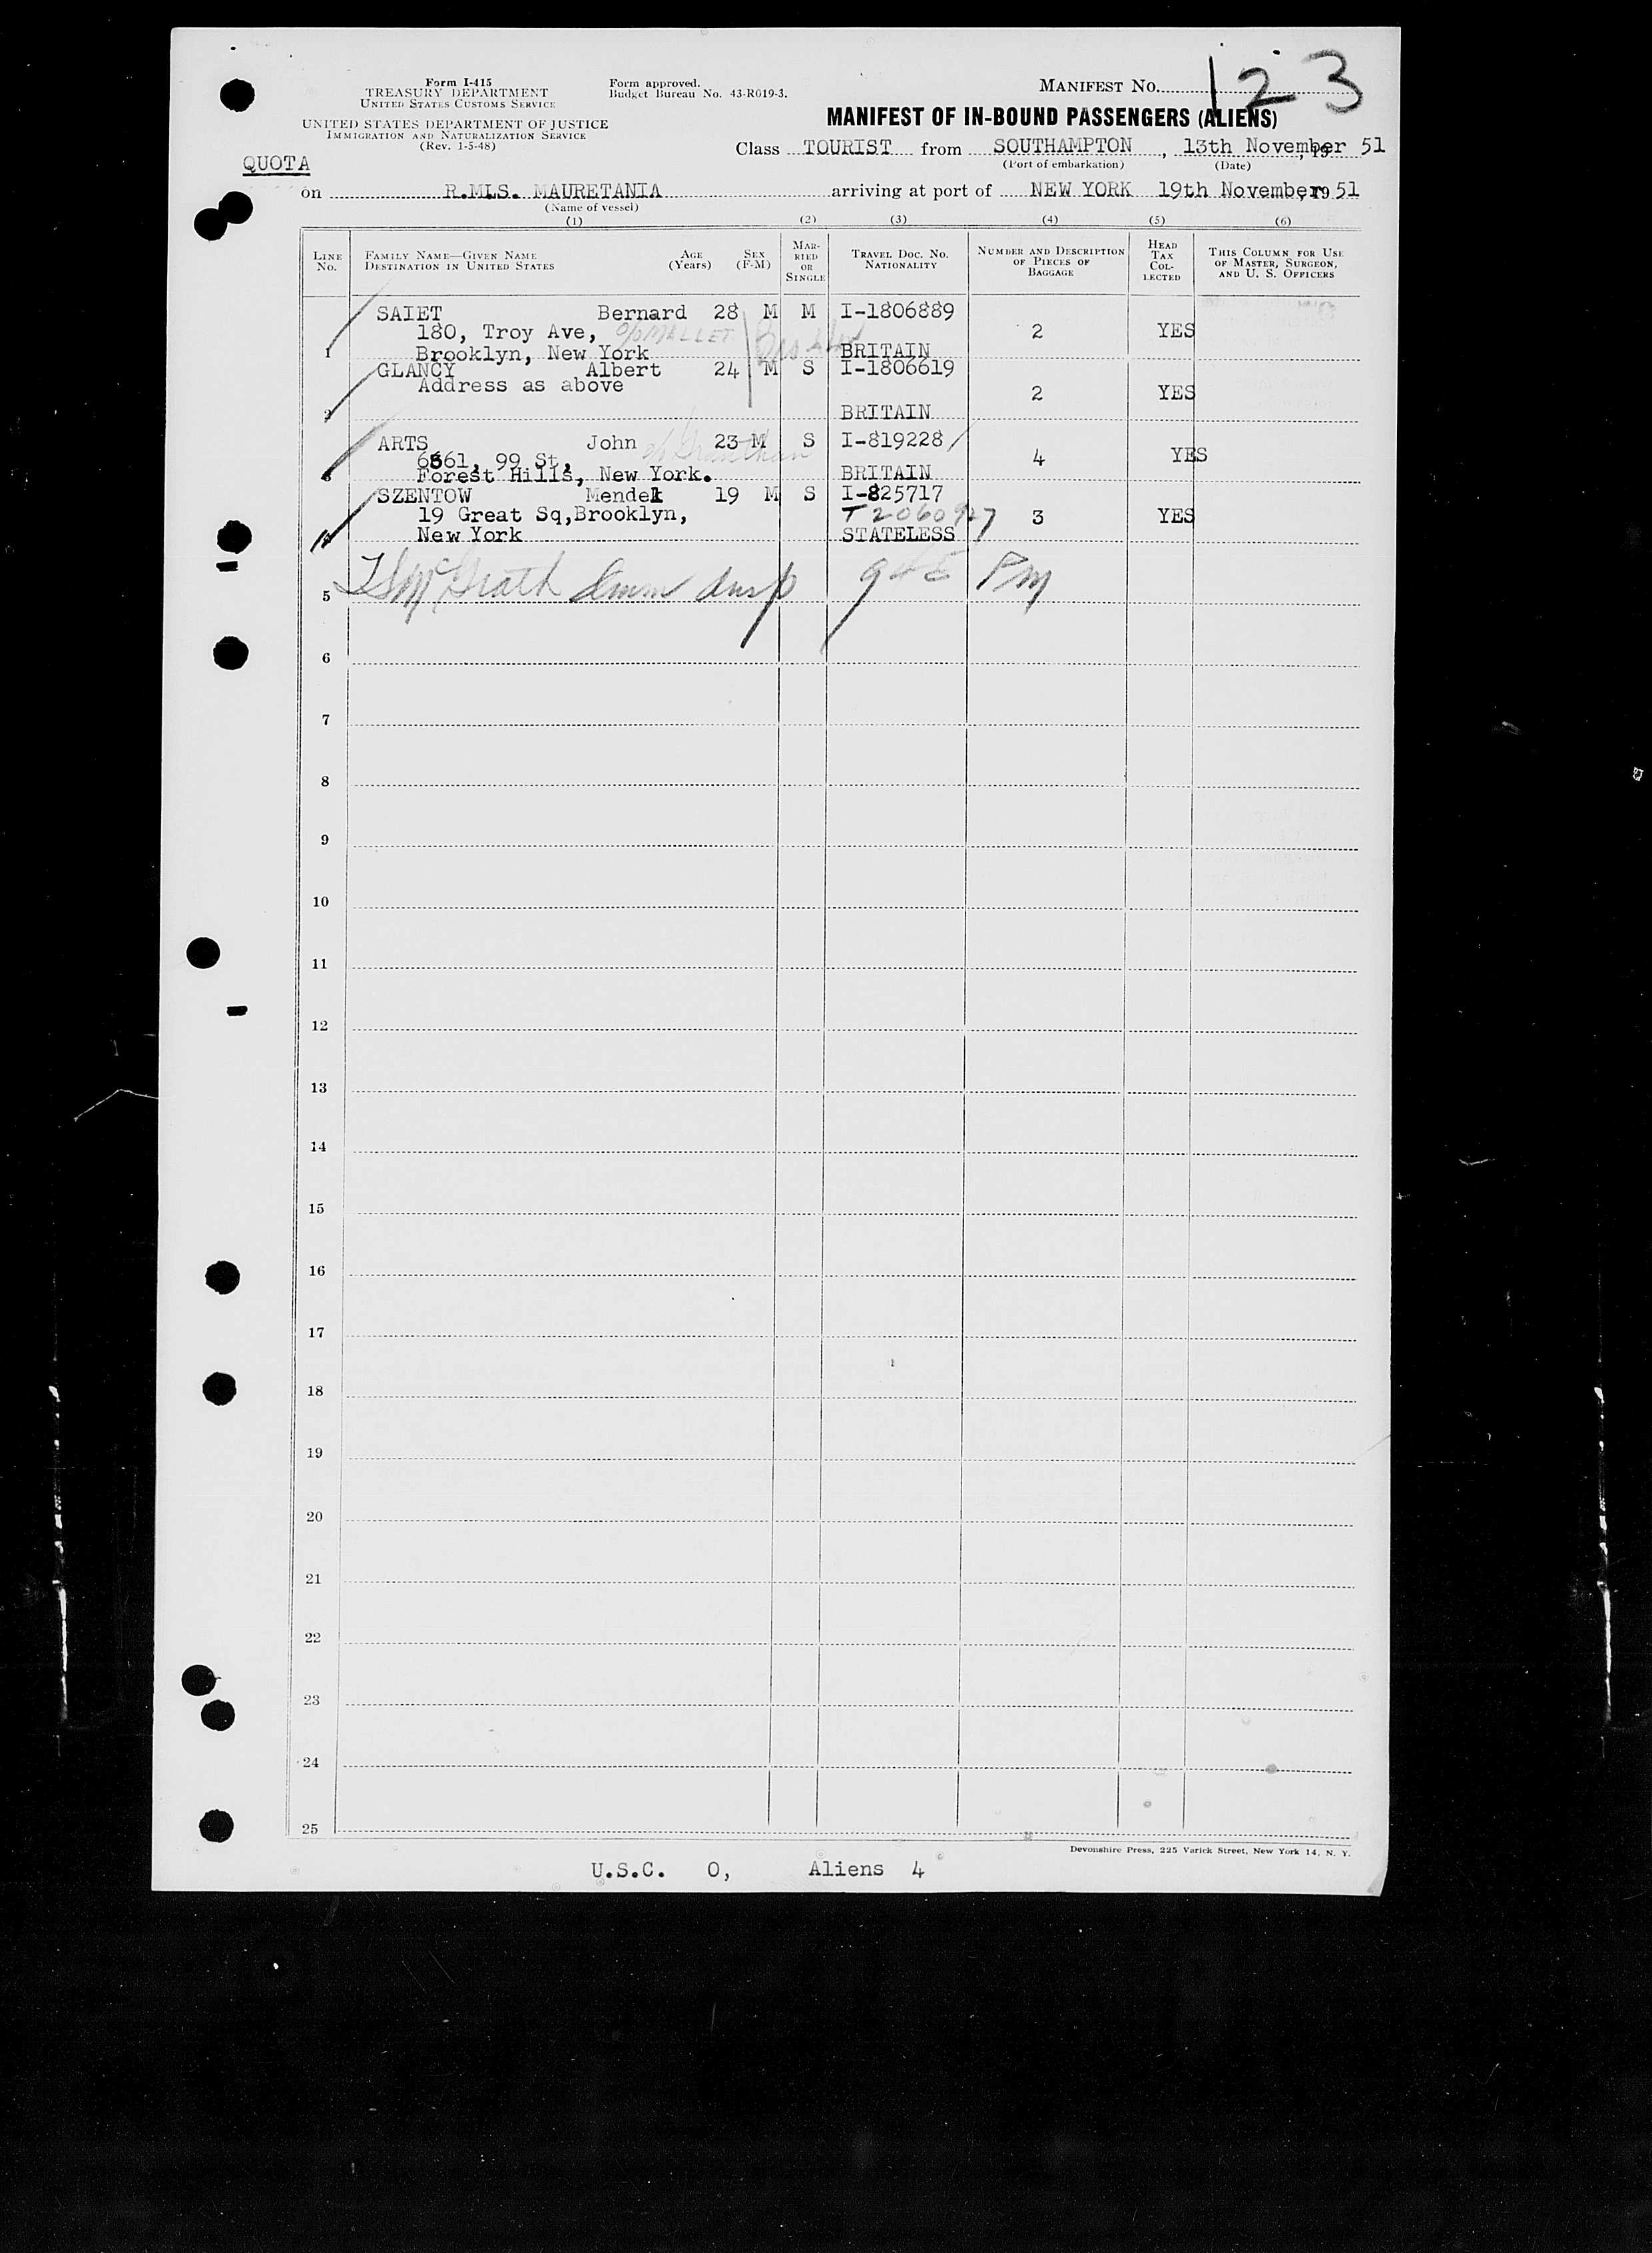 Form I-415
TREASURY DEPARTMENT
UNITED STATES CUSTOMS SERVICE
Form approved.
Budget Bureau No. 43-R019-3.
MANIFEST NO. 123
UNITED STATES DEPARTMENT OF JUSTICE
IMMIGRATION AND NATURALIZATION SERVICE
(Rev. 1-5-48)
MANIFEST OF IN-BOUND PASSENGERS (ALIENS)
QUOTA
Class TOURIST from SOUTHAMPTON, 13th November, 19 51
(Port of embarkation) (Date)
on R.MLS. MAURETANIA arriving at port of NEW YORK 19th November, 19 51
(Name of vessel)
(1) (2) (3) (4) (5) (6)
LINE NO.
FAMILY NAME—GIVEN NAME
DESTINATION IN UNITED STATES
AGE (Years)
SEX (F-M)
MARRIED OR SINGLE
TRAVEL DOC. NO.
NATIONALITY
NUMBER AND DESCRIPTION OF PIECES OF BAGGAGE
HEAD TAX COLLECTED
THIS COLUMN FOR USE OF MASTER, SURGEON, AND U. S. OFFICERS
SAIET Bernard 28 M M I-1806889
180, Troy Ave, c/o MALLET 2 YES
1 Brooklyn, New York BRITAIN
GLANCY Albert 24 M S I-1806619
Address as above 2 YES
2 BRITAIN
ARTS John 23 M S I-819228
6561, 99 St, 4 YES
Forest Hills, New York. BRITAIN
SZENTOW Mendel 19 M S I-825717
19 Great Sq,Brooklyn, T2060927 3 YES
New York STATELESS
5 McGrath Imm Insp PM
6
7
8
9
10
11
12
13
14
15
16
17
18
19
20
21
22
23
24
25
Devonshire Press, 225 Varick Street, New York 14, N. Y.
U.S.C. 0, Aliens 4